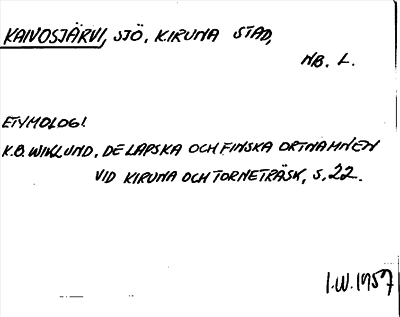 KAIVOSJÄRVI, SJÖ, KIRUNA STAD,
NB. L.
ETYMOLOGI.
K.B. WIKLUND, DE LAPSKA OCH FINSKA ORTNAMNEN
VID KIRUNA OCH TORNETRÄSK, S. 22.
I.W. 1957